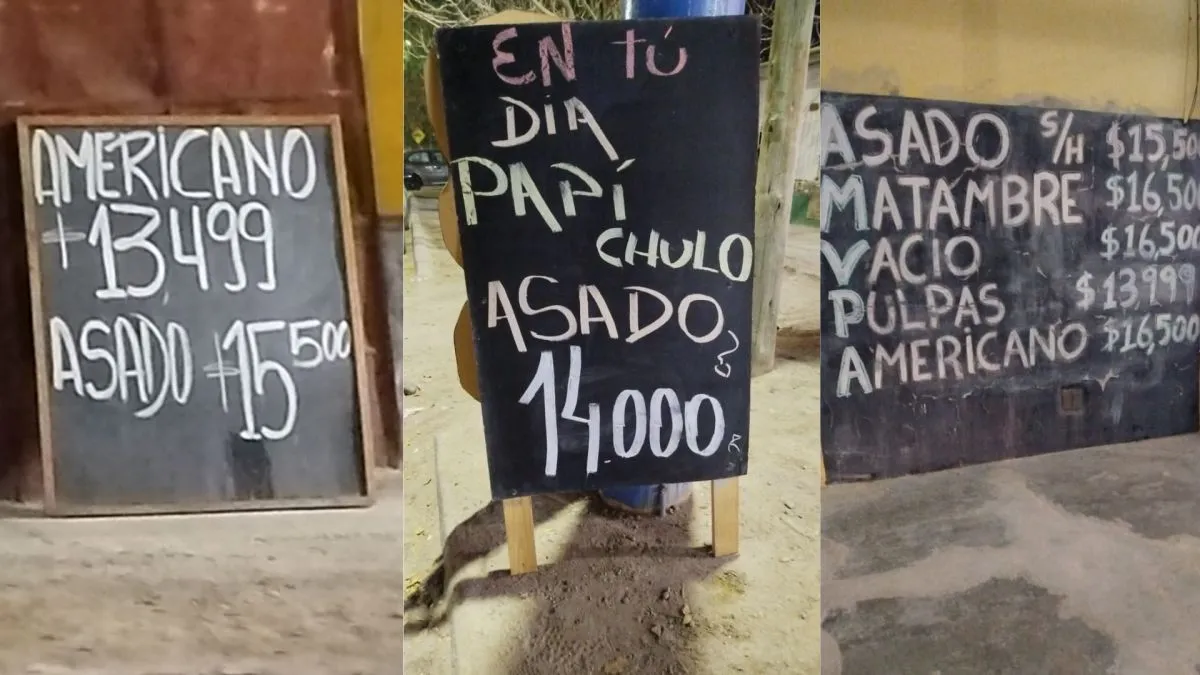 AMERICANO
$13,499
ASADO $15500
EN TÚ
DIA
PAPÍ
CHULO
ASADO
14.000
ASADO S/H $15,50
MATAMBRE $16,50
VACIO $16,500
PULPAS $13999
AMERICANO $16,500